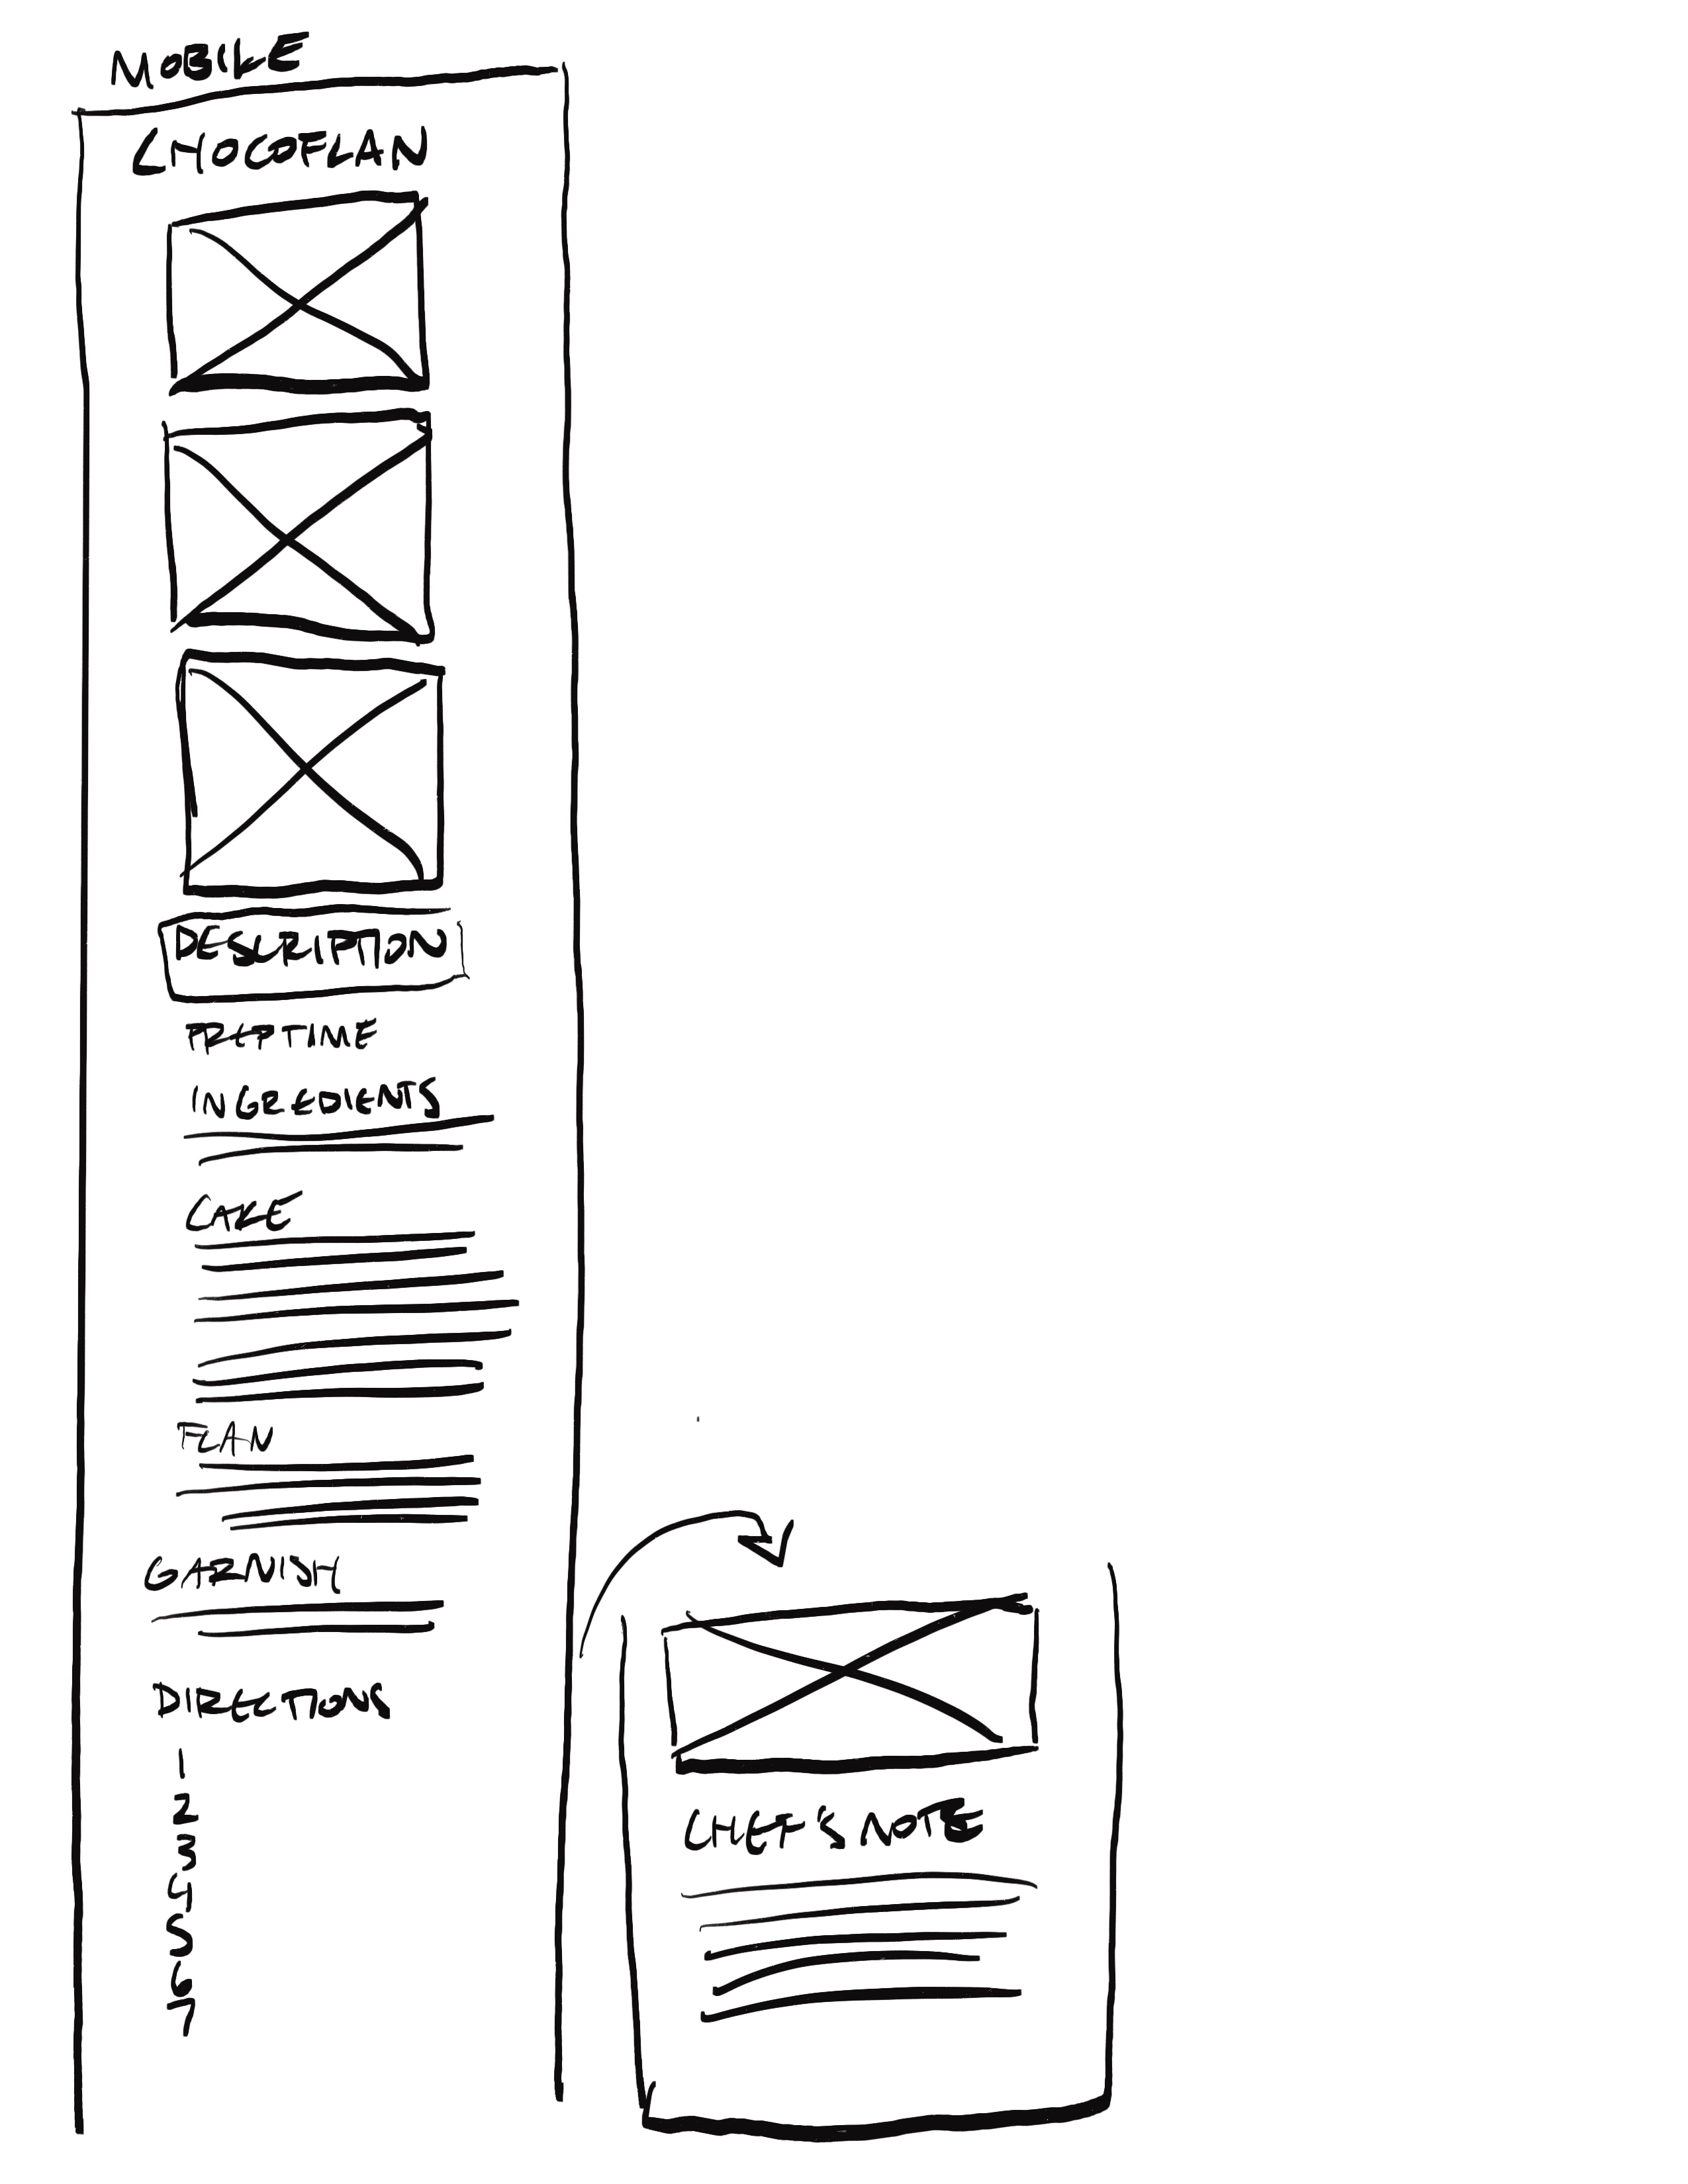 MOBILE
CHOCOFLAN
DESCRIPTION
PREP TIME
INGREDIENTS
CAKE
FLAN
GARNISH
DIRECTIONS
1
2
3
4
5
6
7
CHEF'S NOTE